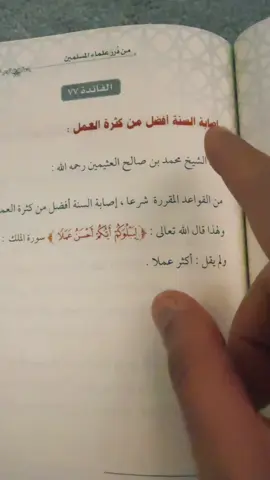 من درر علماء المسلمين
الفائدة ٧٧
إصابة السنة أفضل من كثرة العمل :
الشيخ محمد بن صالح العثيمين رحمه الله :
من القواعد المقررة شرعا ، إصابة السنة أفضل من كثرة العمل
ولهذا قال الله تعالى : ﴿ لِيَبْلُوَكُمْ أَيُّكُمْ أَحْسَنُ عَمَلًا ﴾ سورة الملك :
ولم يقل : أكثر عملا .